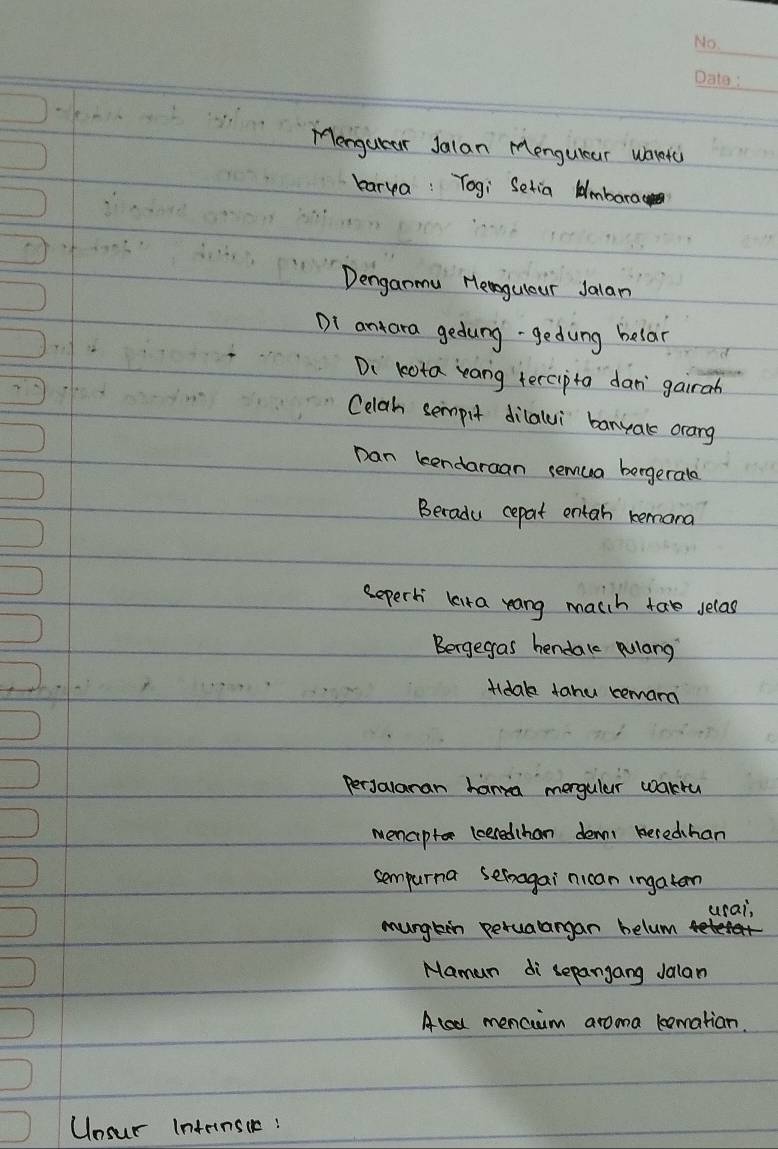 No.
Date :
Mengukur Jalan Mengukur Waktu
karya : Yogi Setia Umbara
Denganmu Mengukur Jalan
Di antara gedung-gedung besar
Di kota yang tercipta dari gairah
Celah sempit dilalui banyak orang
Dan kendaraan semua bergerak
Beradu cepat entah kemana
Seperti kita yang masih tak jelas
Bergegas hendak pulang
tidak tahu kemana
Perjalanan hanya mengukur waktu
Mencipta kesedihan demi kesedihan
sempurna sebagai nisan ingatan
mungkin petualangan belum usai,
Namun di sepanjang Jalan
Aku mencium aroma kematian.
Unsur Intrinsik :